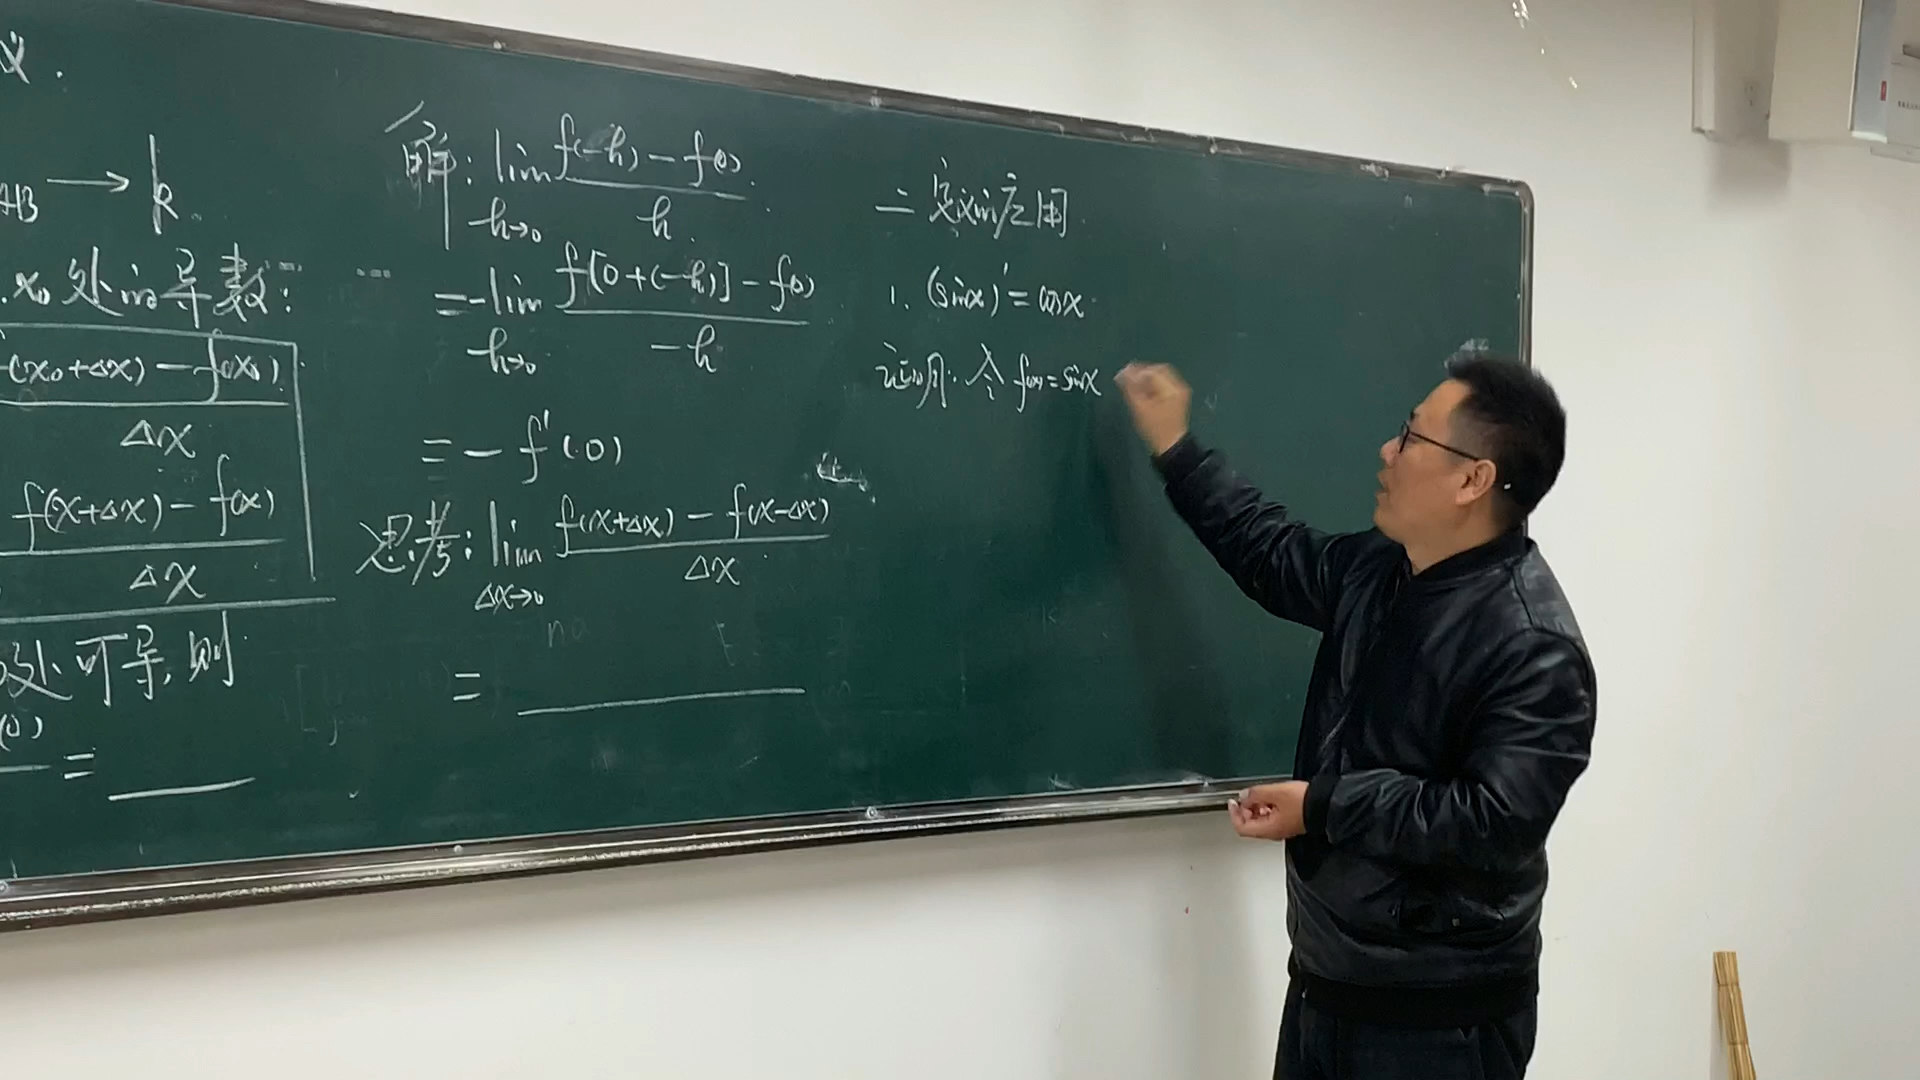 义.
AB → k.
x₀处的导数:
(x₀+Δx)-f(x₀)
Δx
f(x+Δx)-f(x)
Δx
处可导,则
(0)
= ____
解: lim f(-h)-f(0)
h→0 h
=-lim f[0+(-h)]-f(0)
h→0 -h
=-f'(0)
思考: lim f(x+Δx)-f(x-Δx)
Δx→0 Δx
= ____
二 定义的应用
1. (sinx)'=cosx
证明: 令 f(x)=sinx